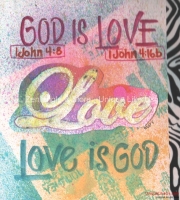 GOD IS LOVE
1 John 4:8 1 John 4:16b
Love
LOVE IS GOD